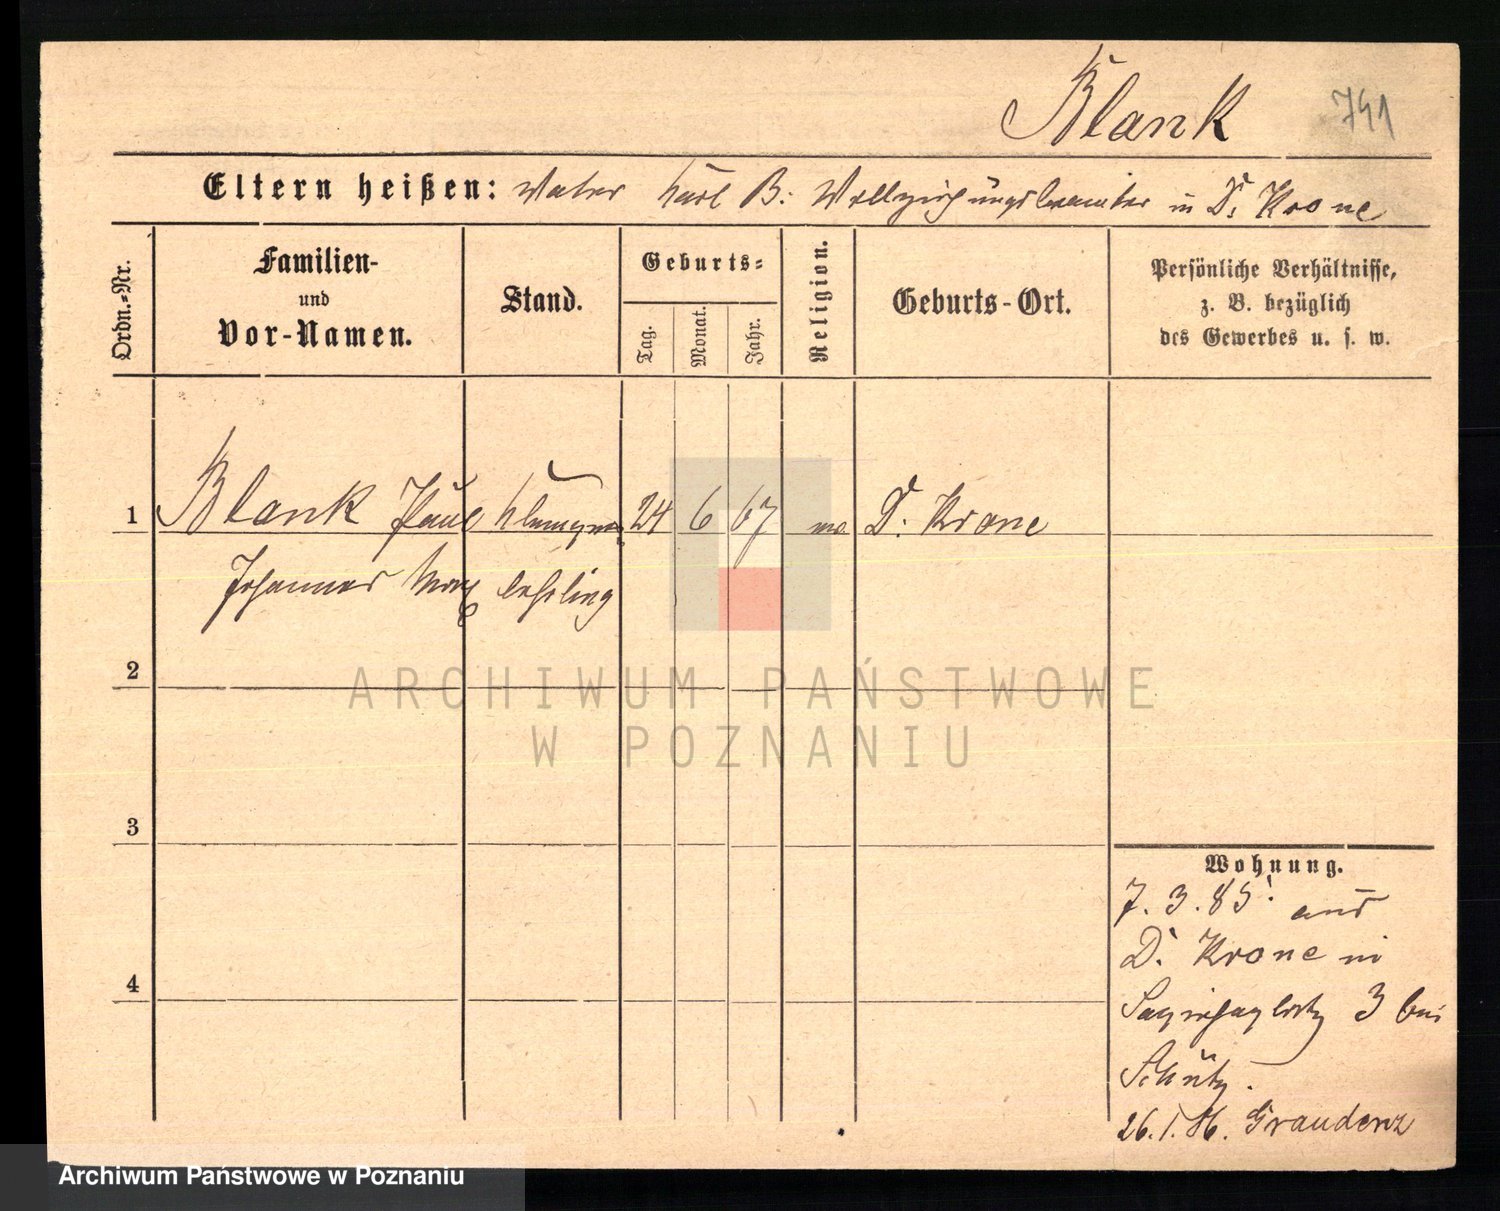 Blank 741
Eltern heißen: Vater Karl B. Vollziehungsbeamter in D. Krone
Ordn.-Nr.
Familien-
und
Vor-Namen.
Stand.
Geburts-
Tag.
Monat.
Jahr.
Religion.
Geburts-Ort.
Persönliche Verhältnisse,
z. B. bezüglich
des Gewerbes u. s. w.
1 Blank Paul Klempner 24 6 67 D. Krone
Johannes Max lehrling
2
3
4
ARCHIWUM PAŃSTWOWE
W POZNANIU
Wohnung.
7. 3. 85. aus
D. Krone in
Sapiehaplatz 3 bei
Schütz.
26. 1. 86. Graudenz
Archiwum Państwowe w Poznaniu